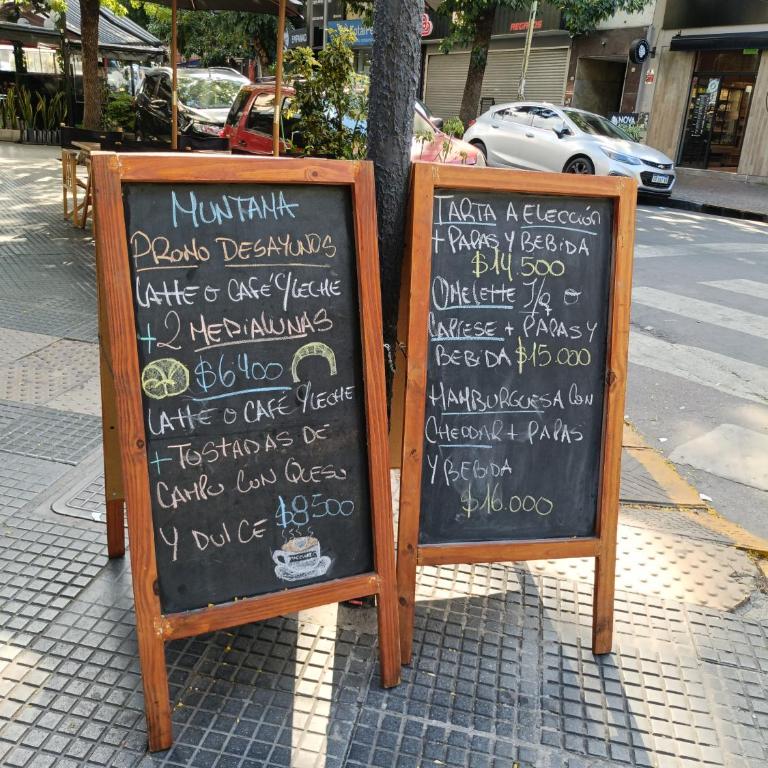 MUNTANA
PROMO DESAYUNOS
LATTE O CAFÉ C/LECHE
+ 2 MEDIALUNAS
$6400
LATTE O CAFÉ C/LECHE
+ TOSTADAS DE
CAMPO CON QUESO
Y DULCE $8500
TARTA A ELECCIÓN
+ PAPAS Y BEBIDA
$14.500
OMELETTE J/Q O
CAPRESE + PAPAS Y
BEBIDA $15.000
HAMBURGUESA CON
CHEDDAR + PAPAS
Y BEBIDA
$16.000
NOVA